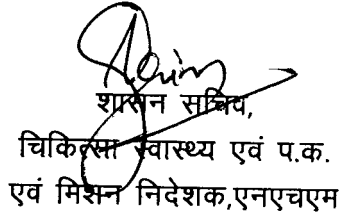 शासन सचिव,
चिकित्सा स्वास्थ्य एवं प.क.
एवं मिशन निदेशक,एनएचएम